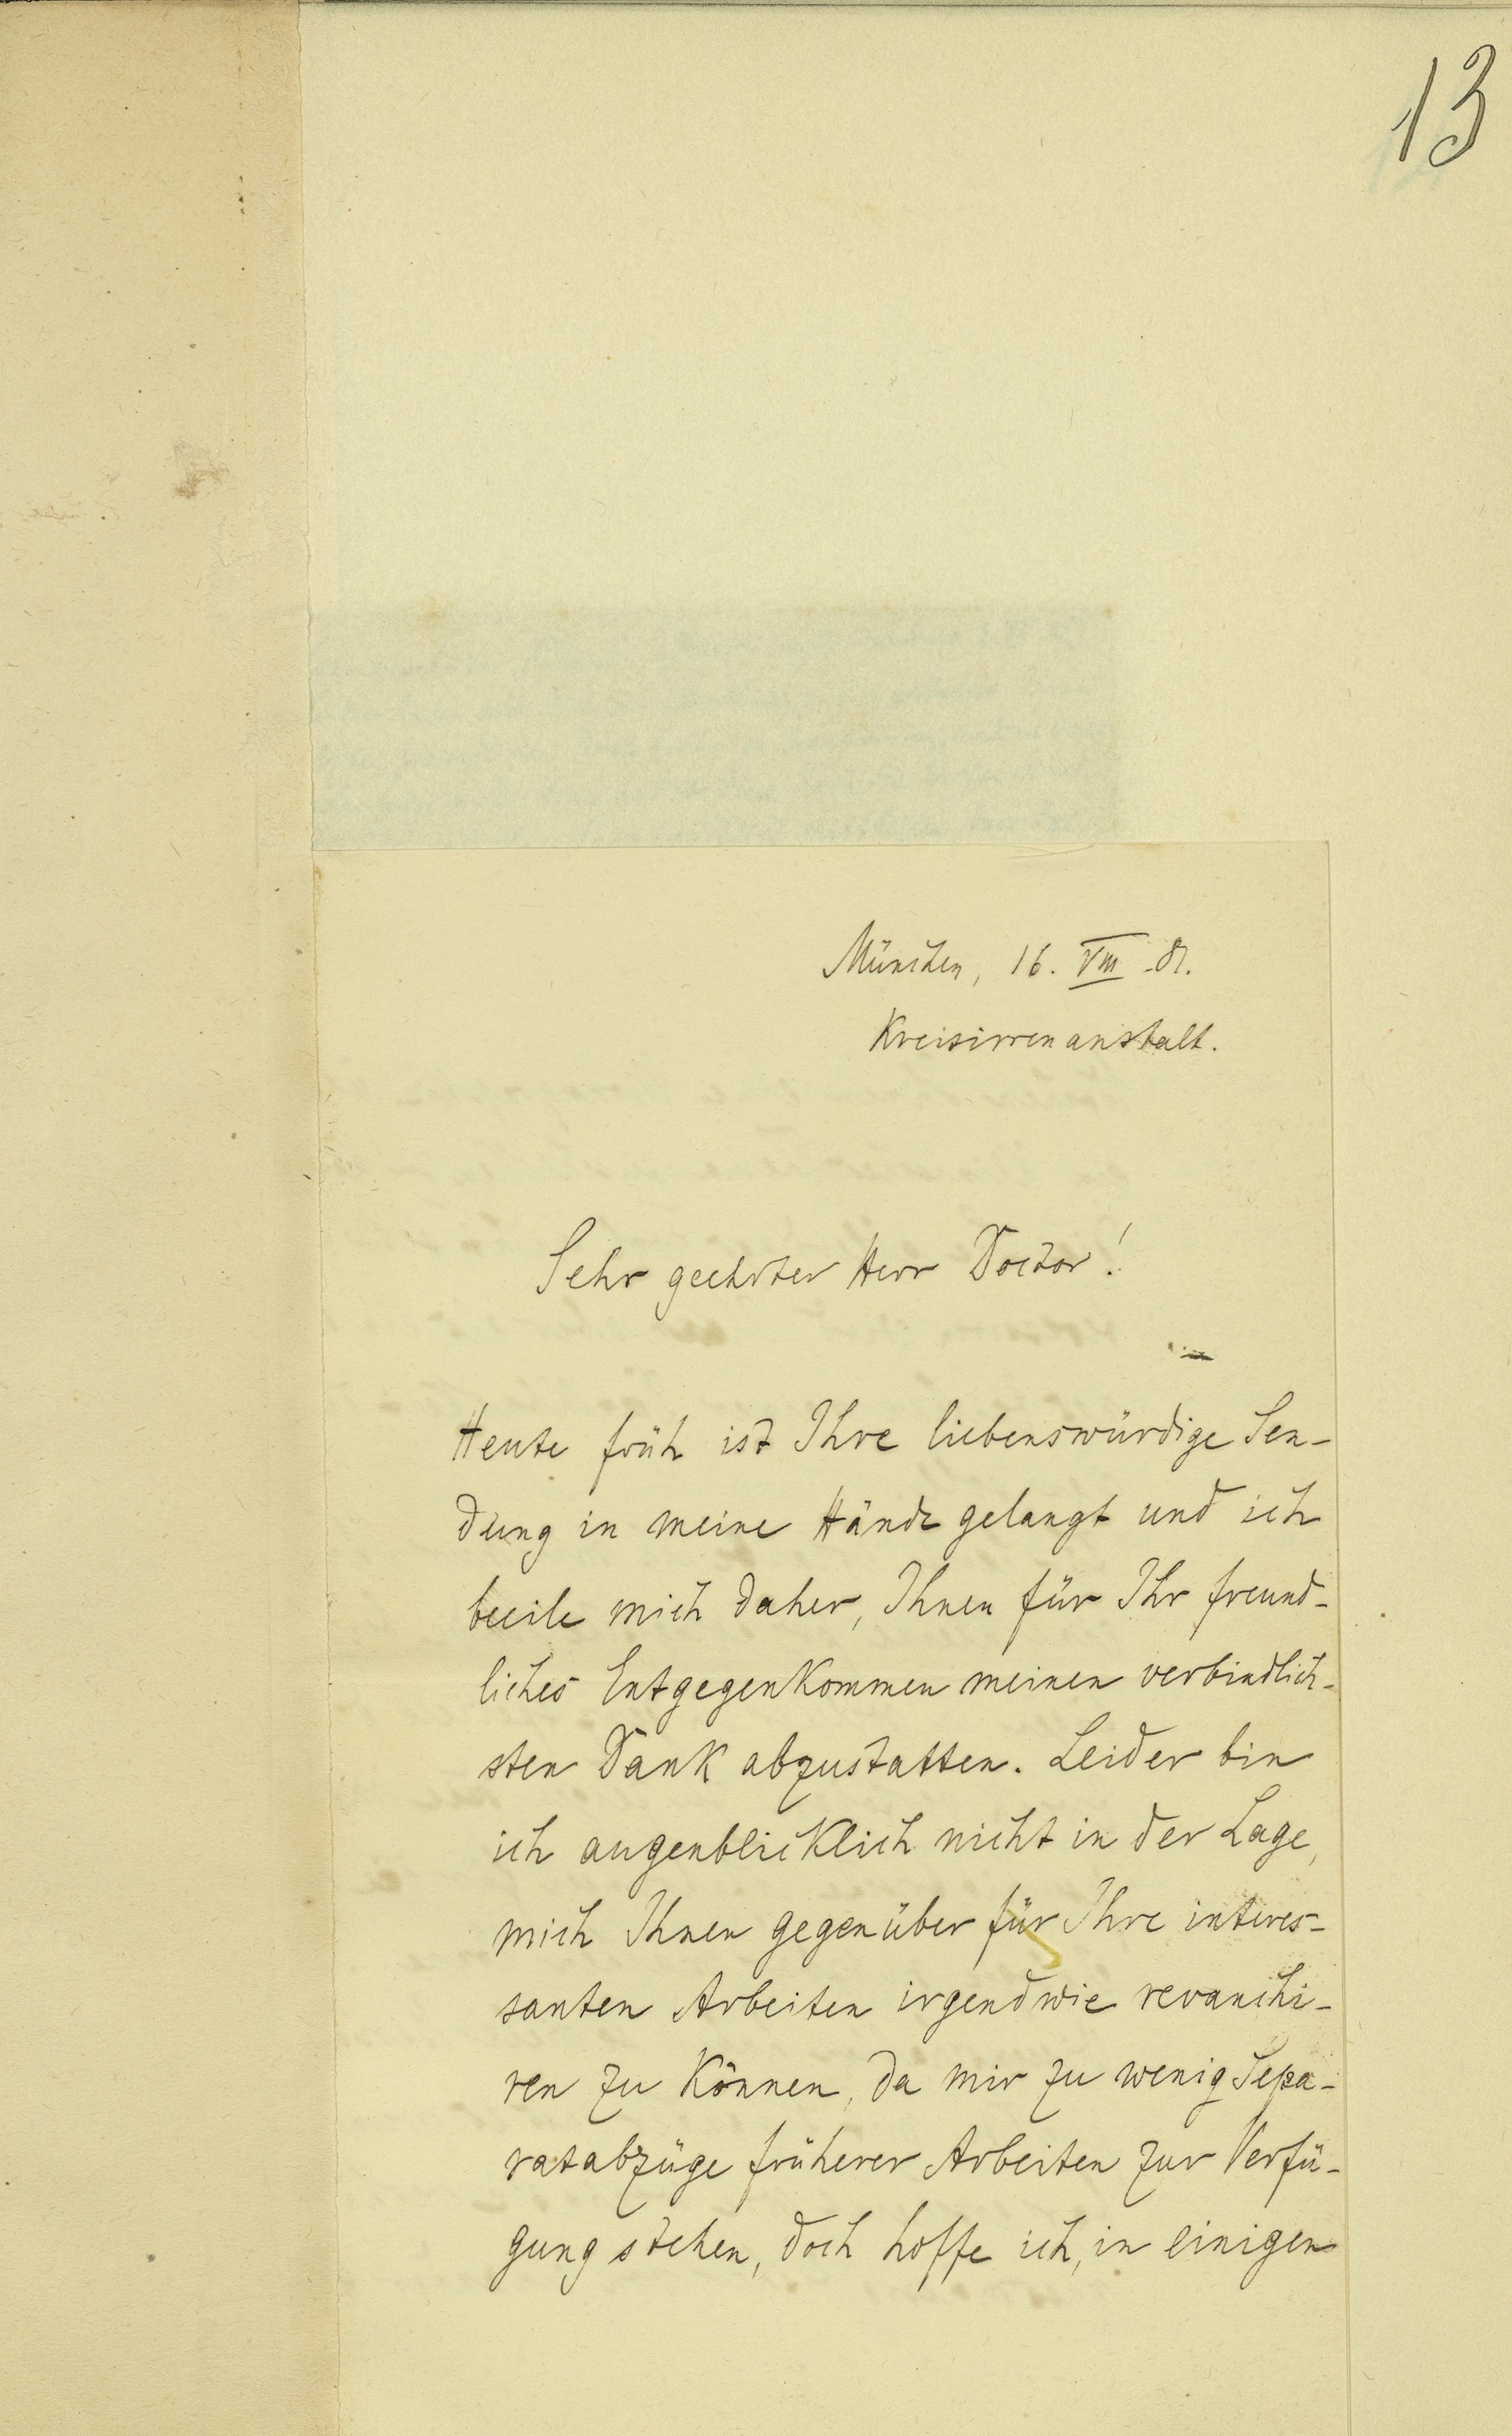 13
München, 16. VIII 81.
Kreisirrenanstalt.
Sehr geehrter Herr Doctor!
Heute früh ist Ihre liebenswürdige Sen-
dung in meine Hände gelangt und ich
beeile mich daher, Ihnen für Ihr freund-
liches Entgegenkommen meinen verbindlich-
sten Dank abzustatten. Leider bin
ich augenblicklich nicht in der Lage,
mich Ihnen gegenüber für Ihre interes-
santen Arbeiten irgendwie revanchi-
ren zu können, da mir zu wenig Sepa-
ratabzüge früherer Arbeiten zur Verfü-
gung stehen, doch hoffe ich, in einigen